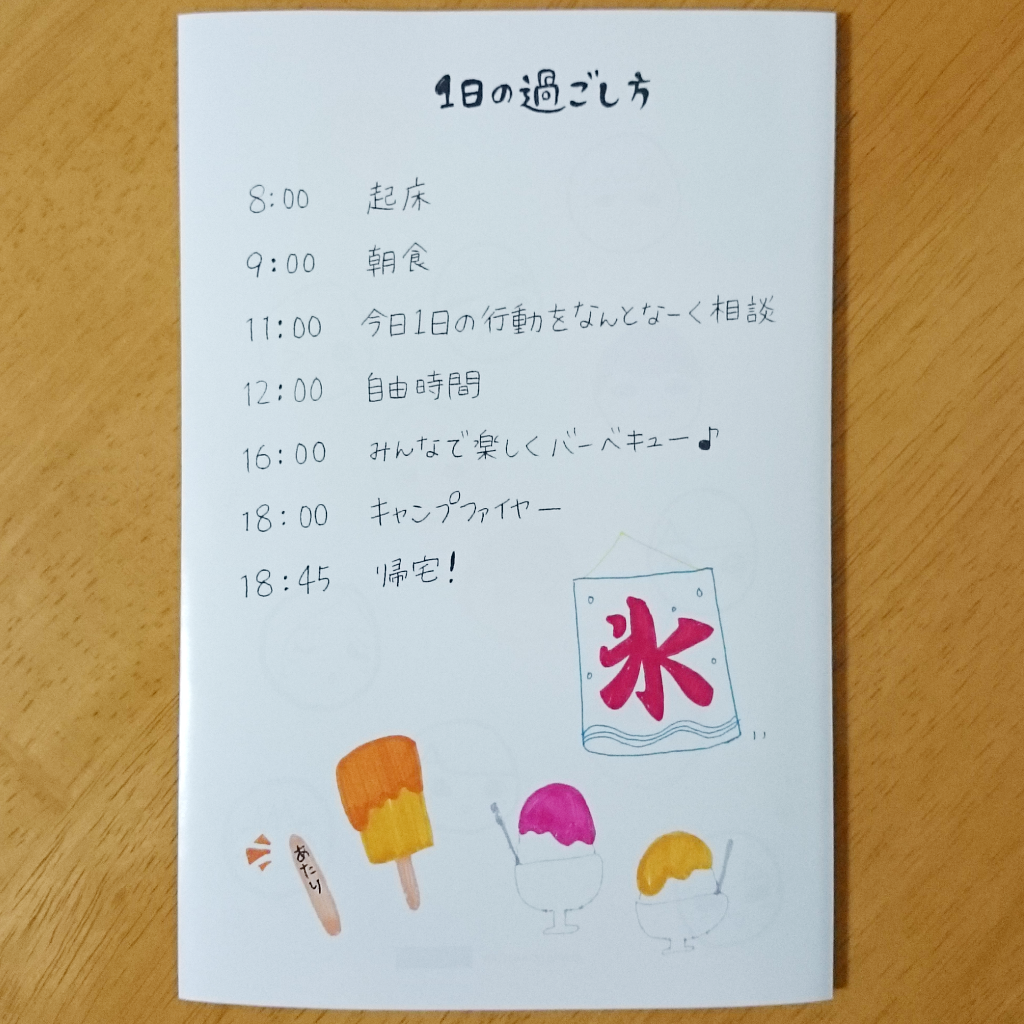 1日の過ごし方
8:00 起床
9:00 朝食
11:00 今日1日の行動をなんとなーく相談
12:00 自由時間
16:00 みんなで楽しくバーベキュー♪
18:00 キャンプファイヤー
18:45 帰宅!
氷
あたり